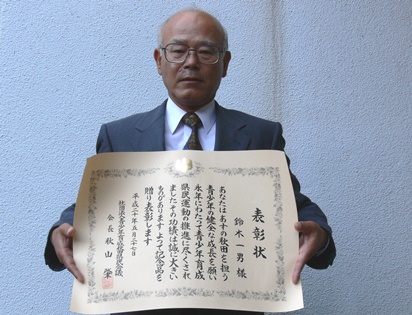 表彰状
鈴木一男様
あなたはあすの秋田を担う
青少年の健全な成長を願い
永年にわたって青少年育成
県民運動の推進に尽くされ
ましたその功績は誠に大きい
ものがありますよって記念品を
贈り表彰します
平成二十年五月二十七日
社団法人青少年育成秋田県民会議
会長 秋山 肇